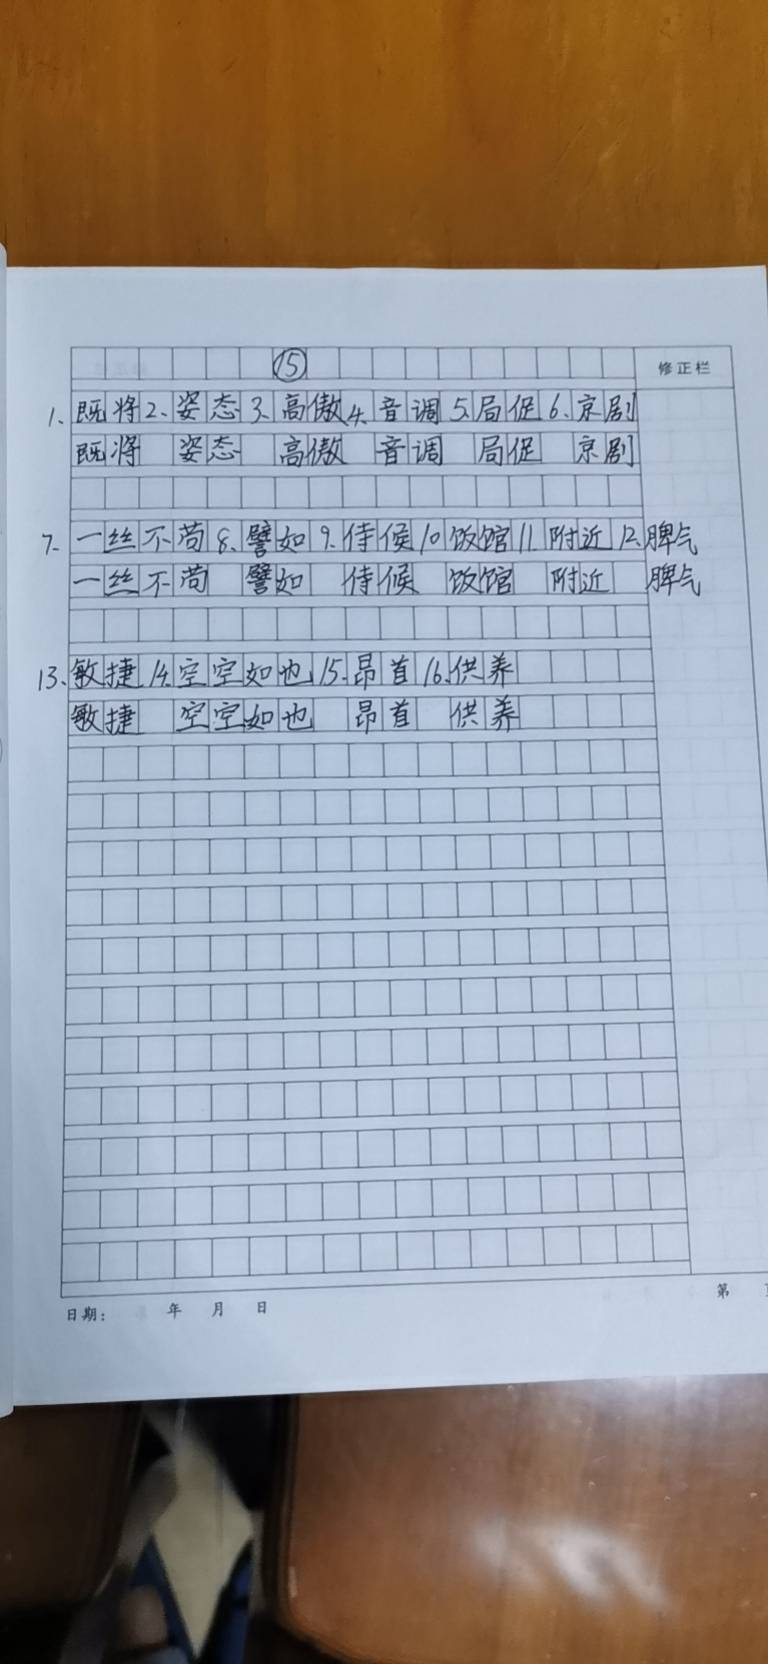 ⑮
修正栏
1、既将2、姿态3、高傲4、音调5、局促6、京剧
既将 姿态 高傲 音调 局促 京剧
7、一丝不苟8、譬如9、侍候10饭馆11、附近12、脾气
一丝不苟 譬如 侍候 饭馆 附近 脾气
13、敏捷14、空空如也15、昂首16、供养
敏捷 空空如也 昂首 供养
日期： 年 月 日
第